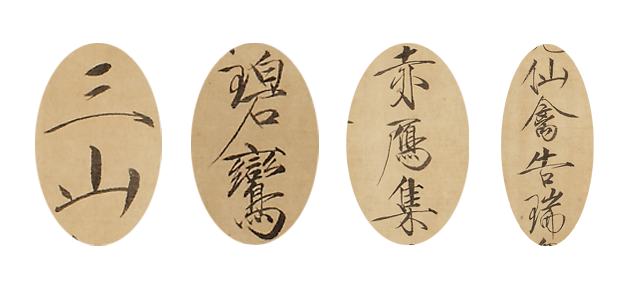 三山
碧鸞
赤鴈集
仙禽告瑞